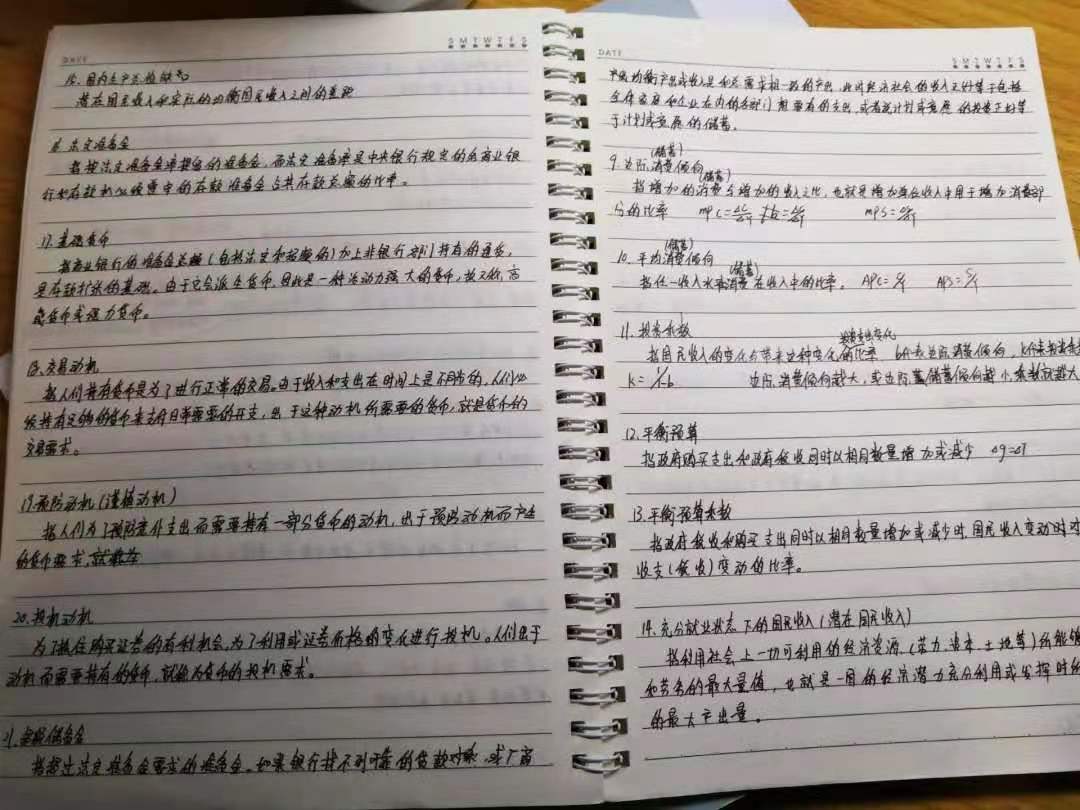 DATE
S M T W T F S
15. 国内生产总值缺口
潜在国民收入和实际的均衡国民收入之间的差距
16. 法定准备金
指按法定准备金率提留的准备金，而法定准备率是中央银行规定的各商业银
行和存款机必须遵守的存款准备金占其存款总额的比率。
17. 基础货币
指商业银行的准备金总额（包括法定和超额的）加上非银行部门持有的通货，
是存款扩张的基础。由于它会派生货币，因此是一种活动力强大的货币，故又称高
能货币或强力货币。
18. 交易动机
指人们持有货币是为了进行正常的交易。由于收入和支出在时间上是不同步的，人们必
须持有足够的货币来支付日常需要的开支，出于这种动机所需要的货币，就是货币的
交易需求。
19. 预防动机（谨慎动机）
指人们为了预防意外支出而需要持有一部分货币的动机，出于预防动机而产生
的货币需求，就
20. 投机动机
为了抓住购买证券的有利机会，为了利用或证券价格的变化进行投机。人们出于
动机而需要持有的货币，就称为货币的投机需求。
21. 超额储备金
指超过法定准备金要求的准备金。如果银行找不到可靠的贷款对象，或厂商
DATE
S M T W T F S
均衡产出或收入是和总需求相一致的产出，此时经济社会的收入正好等于包括
全体家庭和企业在内的各部门想要有的支出，或者说计划或意愿的投资正好等
于计划或意愿的储蓄。
(储蓄)
9. 边际消费倾向
(储蓄)
指增加的消费与增加的收入之比，也就是增加单位收入中用于增加消费部
分的比率 MPC=△C/△Y MPS=△S/△Y
(储蓄)
10. 平均消费倾向
(储蓄)
指任一收入水平消费在收入中的比率。 APC=C/Y APS=S/Y
11. 投资乘数
指国民收入的变化与带来这种变化的比率 b代表边际消费倾向，k代表
k=1/1-b 边际消费倾向越大，或边际储蓄倾向越小，乘数就越大
12. 平衡预算
指政府购买支出和政府税收同时以相同数量增加或减少 △g=△T
13. 平衡预算乘数
指政府税收和购买支出同时以相同数量增加或减少时，国民收入变动时对
收支（税收）变动的比率。
14. 充分就业状态下的国民收入（潜在国民收入）
指利用社会上一切可利用的经济资源（劳力、资本、土地等）所能
和劳务的最大量值，也就是一国的经济潜力充分利用或发挥时
的最大产出量。